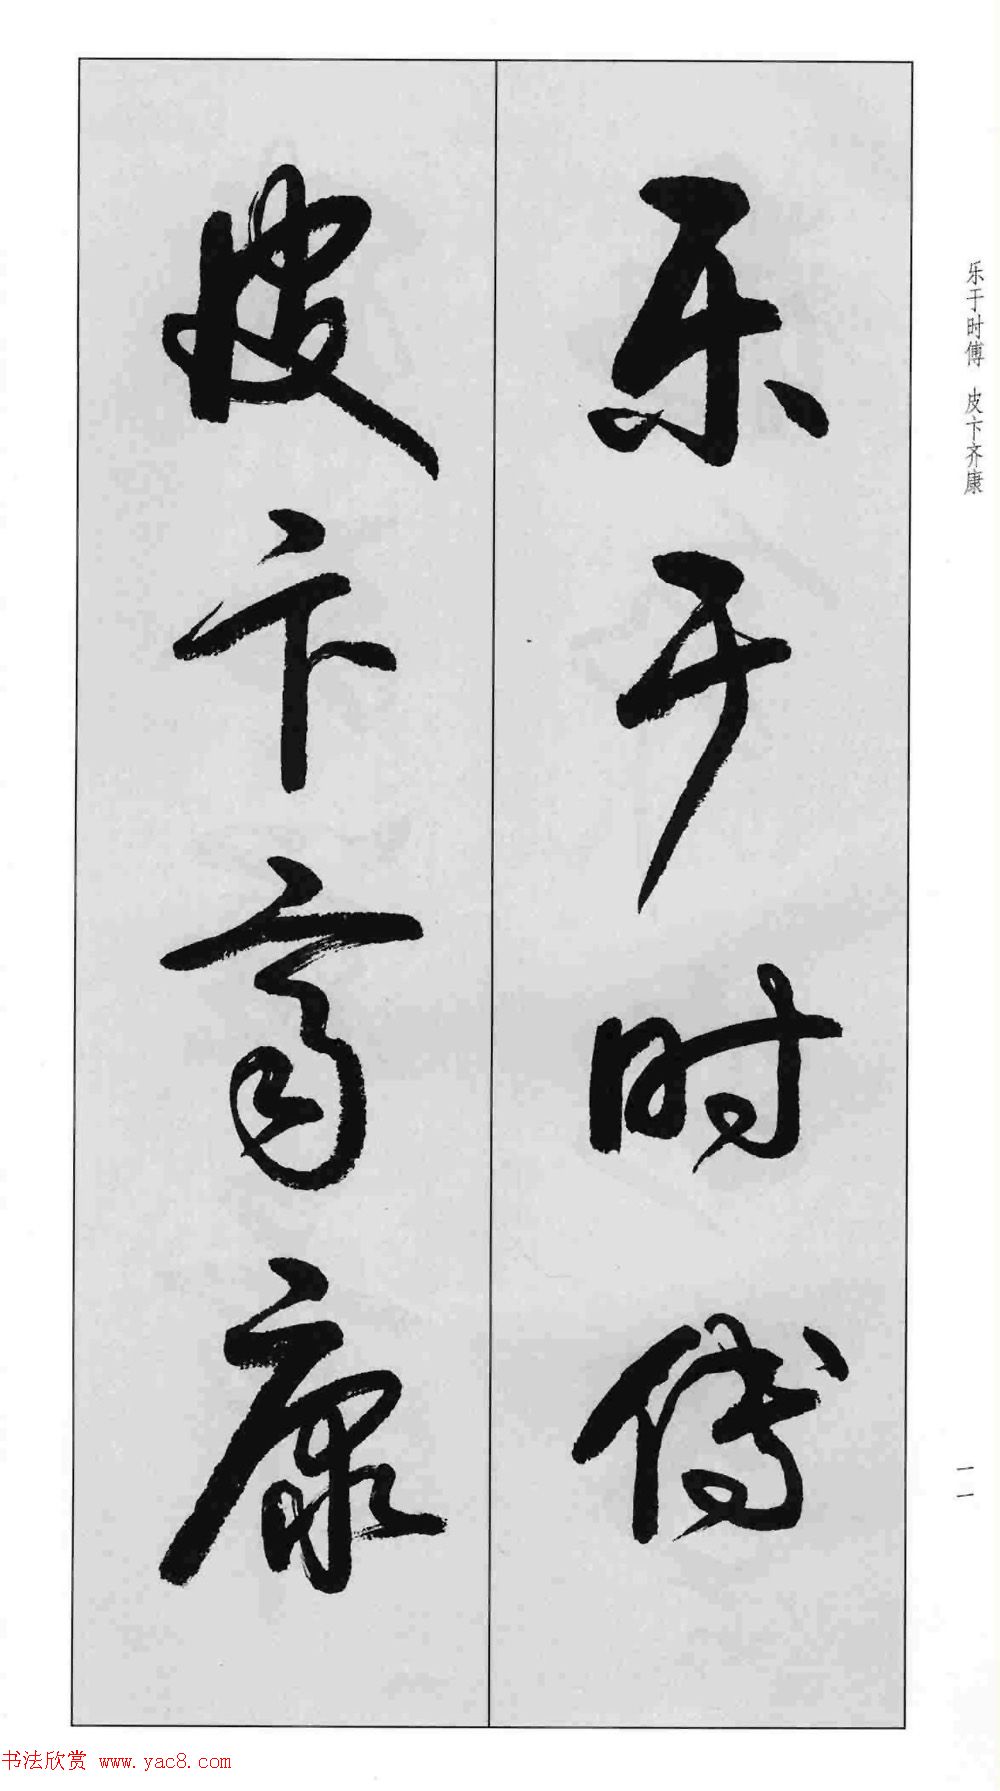 乐于时傅 皮卞齐康
乐于时傅
皮卞齐康
一一
书法欣赏 www.yac8.com